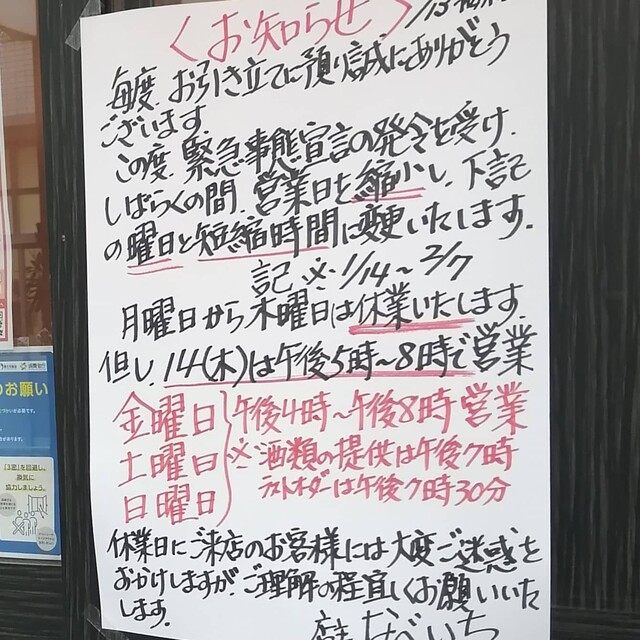 〈お知らせ〉
毎度、お引き立てに預り誠にありがとう
ございます。
この度、緊急事態宣言の発令を受け、
しばらくの間、営業日を縮小し、下記
の曜日と短縮時間に変更いたします。
記 ※ 1/14～2/7
月曜日から木曜日は休業いたします。
但し、14(木)は午後5時～8時で営業
金曜日 午後4時～午後8時営業
土曜日 ※酒類の提供は午後7時
日曜日 ラストオーダーは午後7時30分
休業日にご来店のお客様には大変ご迷惑を
おかけしますが、ご理解の程宜しくお願いいた
します。
なべいち
のお願い
「3密」を回避し、
換気に
協力しましょう。